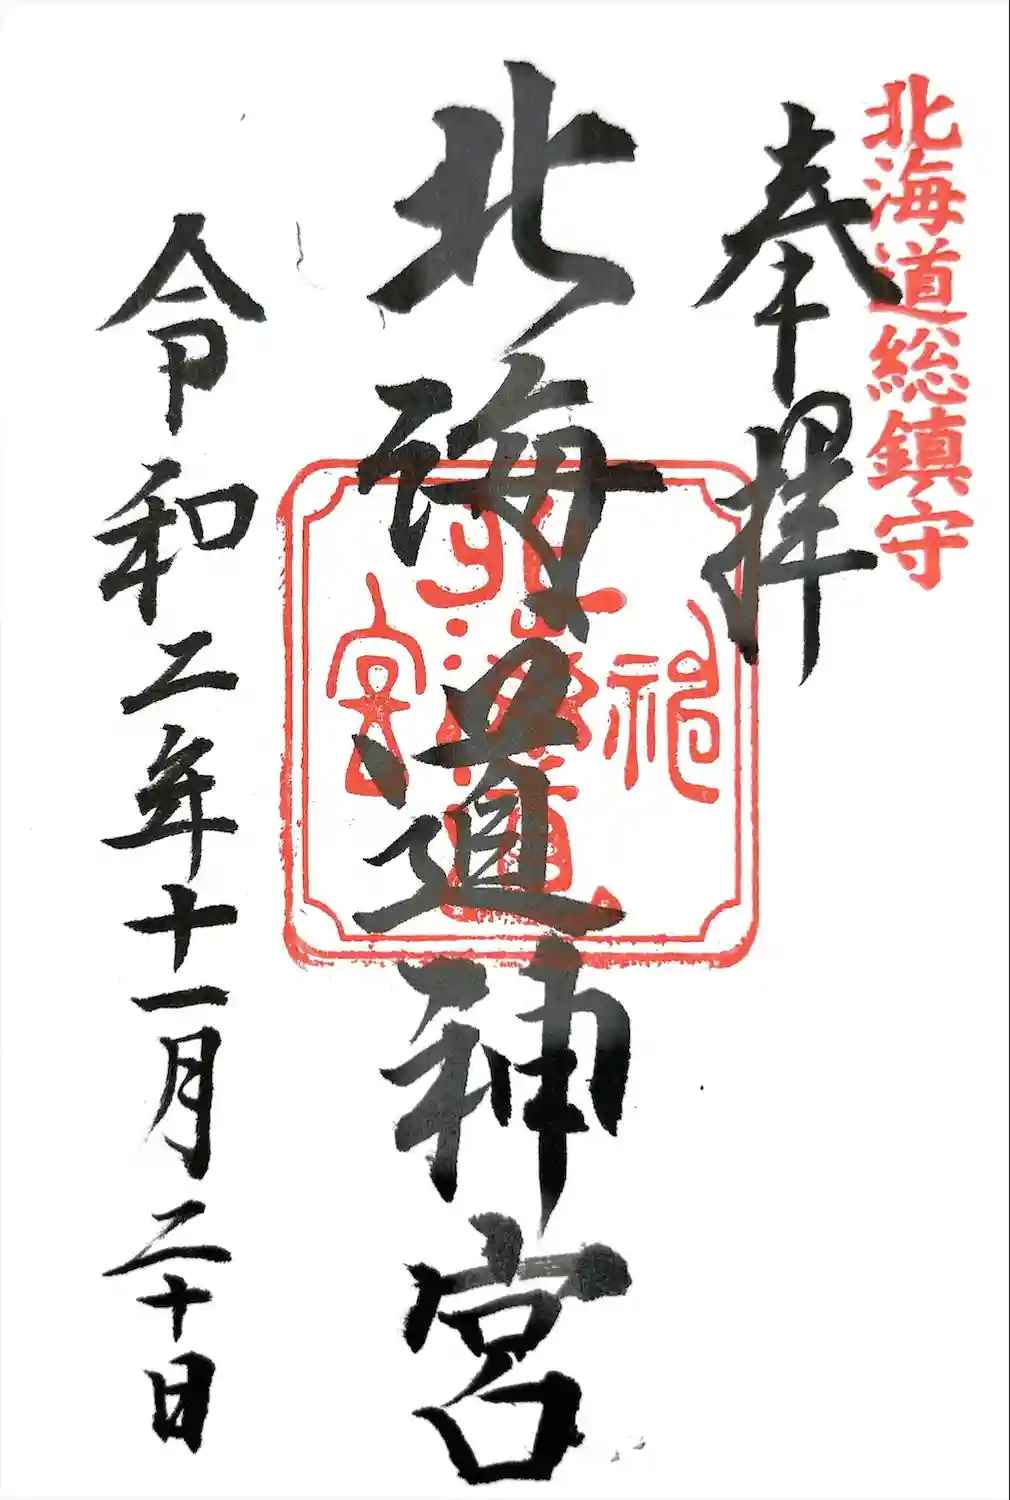 北海道総鎮守
奉拝
北海道神宮
北海道神宮
令和二年十一月二十日